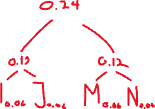 0.24
0.12 0.12
I 0.06 J 0.06 M 0.06 N 0.06